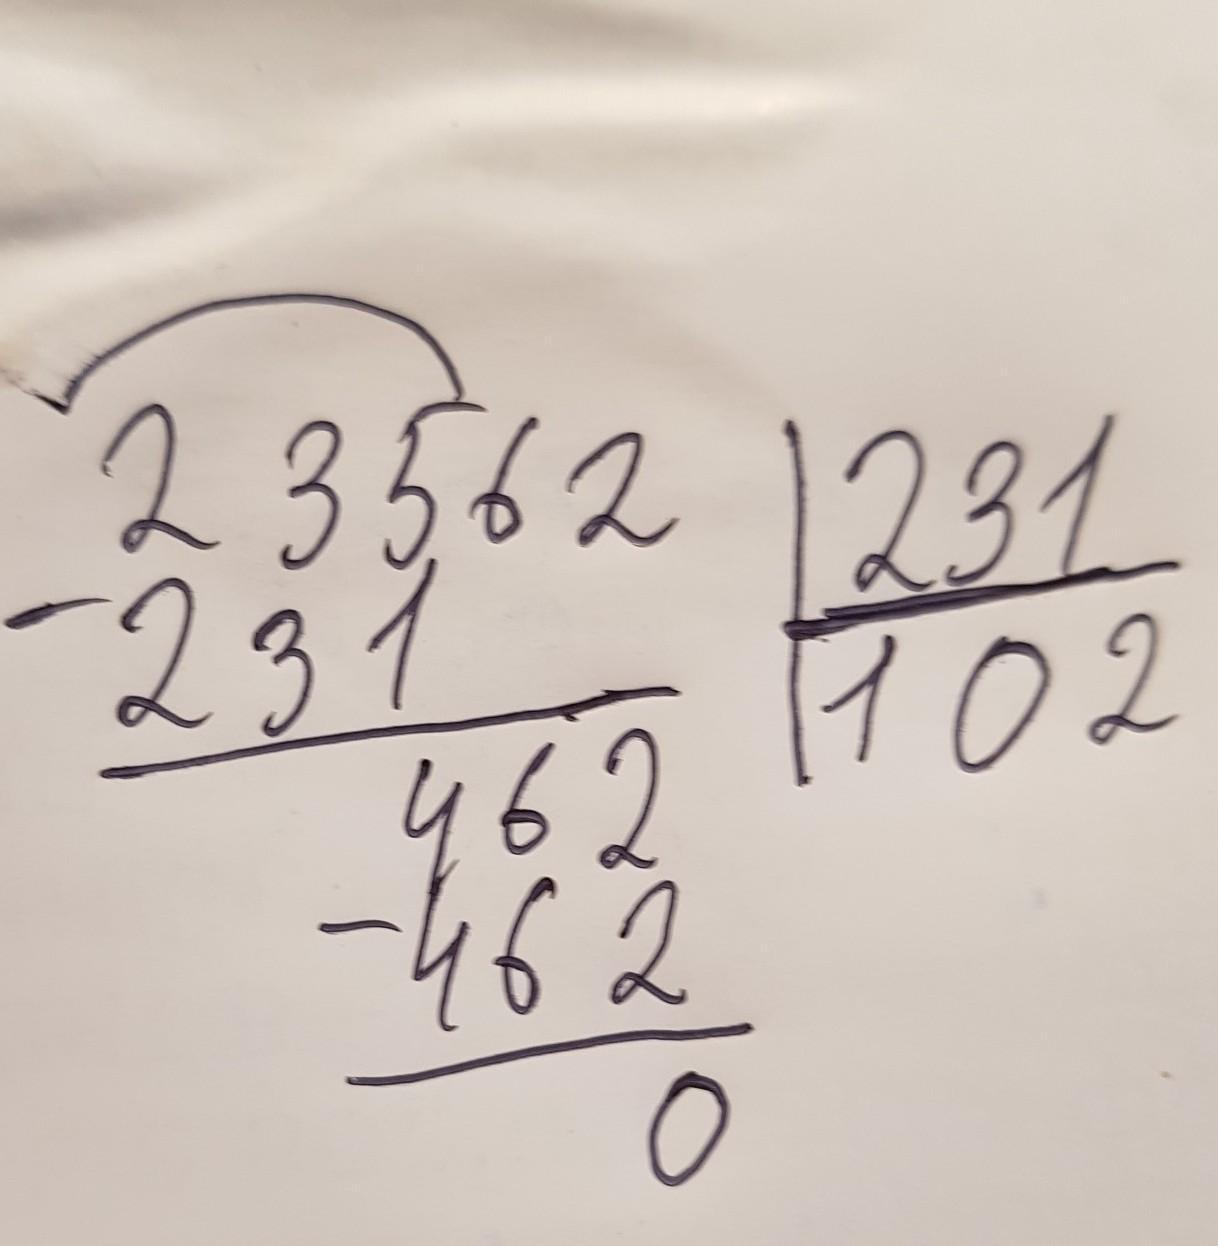 23562 231
-231 102
462
-462
0